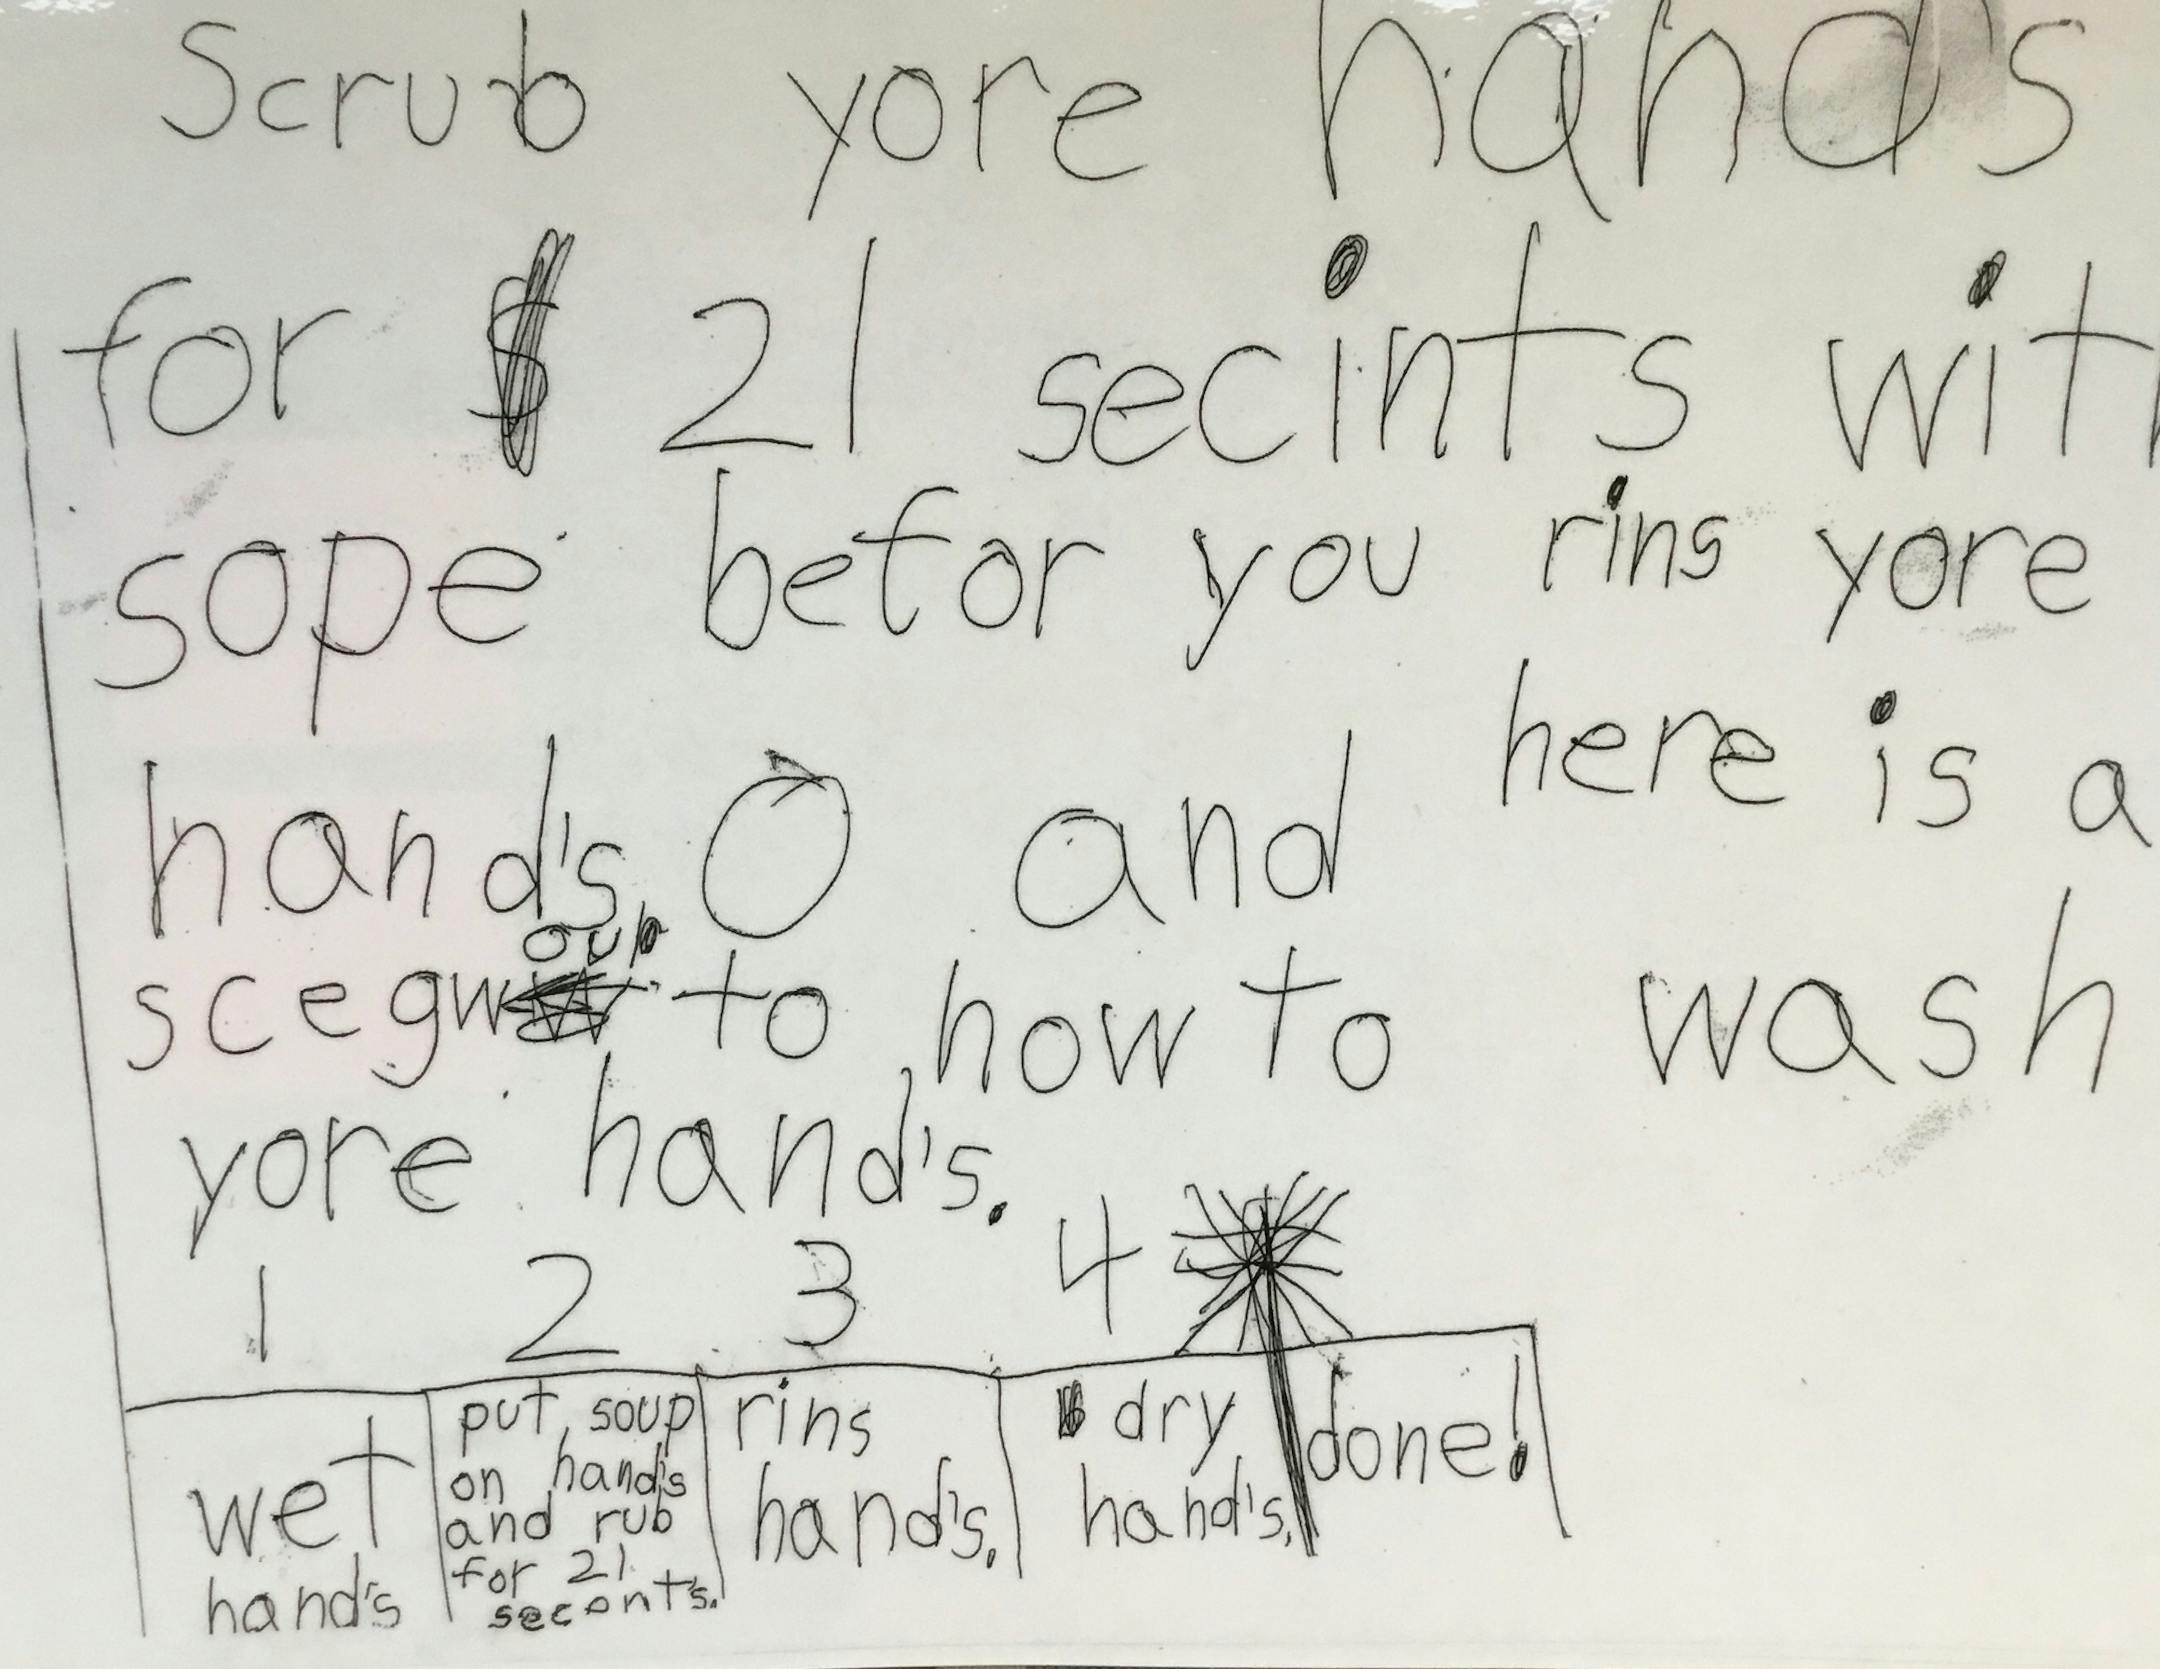 Scrub yore hand's
for 21 secints wit
sope befor you rins yore
hand's. O and here is a
scegw to how to wash
yore hand's.
1 2 3 4
wet
hand's
put soup
on hand's
and rub
for 21
seconts.
rins
hand's.
dry
hand's.
done!